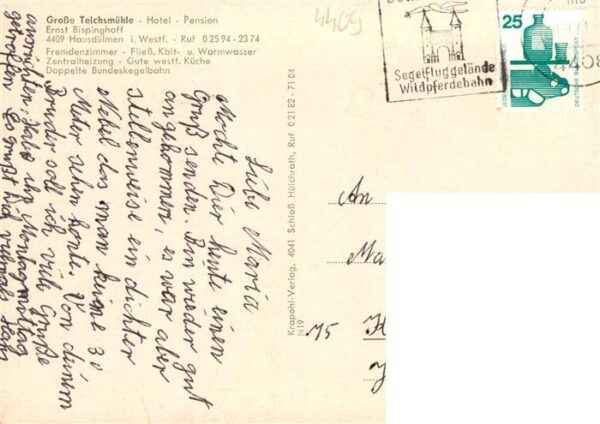 Große Teichsmühle - Hotel - Pension
Ernst Bispinghoff
4409 Hausdülmen i. Westf. - Ruf 0 25 94 - 23 74
Fremdenzimmer - Fließ. Kalt- u. Warmwasser
Zentralheizung - Gute westf. Küche
Doppelte Bundeskegelbahn
4409
Segelfluggelände
Wildpferdebahn
25
DEUTSCHE BUNDESPOST
Liebe Maria
Möchte Dir heute einen
Gruß senden. Bin wieder gut
angekommen, es war aber
stellenweise ein dichter
Nebel das man keine 30
Meter sehen konte. Von deinem
Bruder soll ich viele Grüße
ausrichten habe ihn Montagmittag
getroffen. Es grüßt Dich vielmals
Krapohl-Verlag, 4041 Schloß Hülchrath, Ruf 0 21 82 - 71 04
N19
An
Ma
M5 H